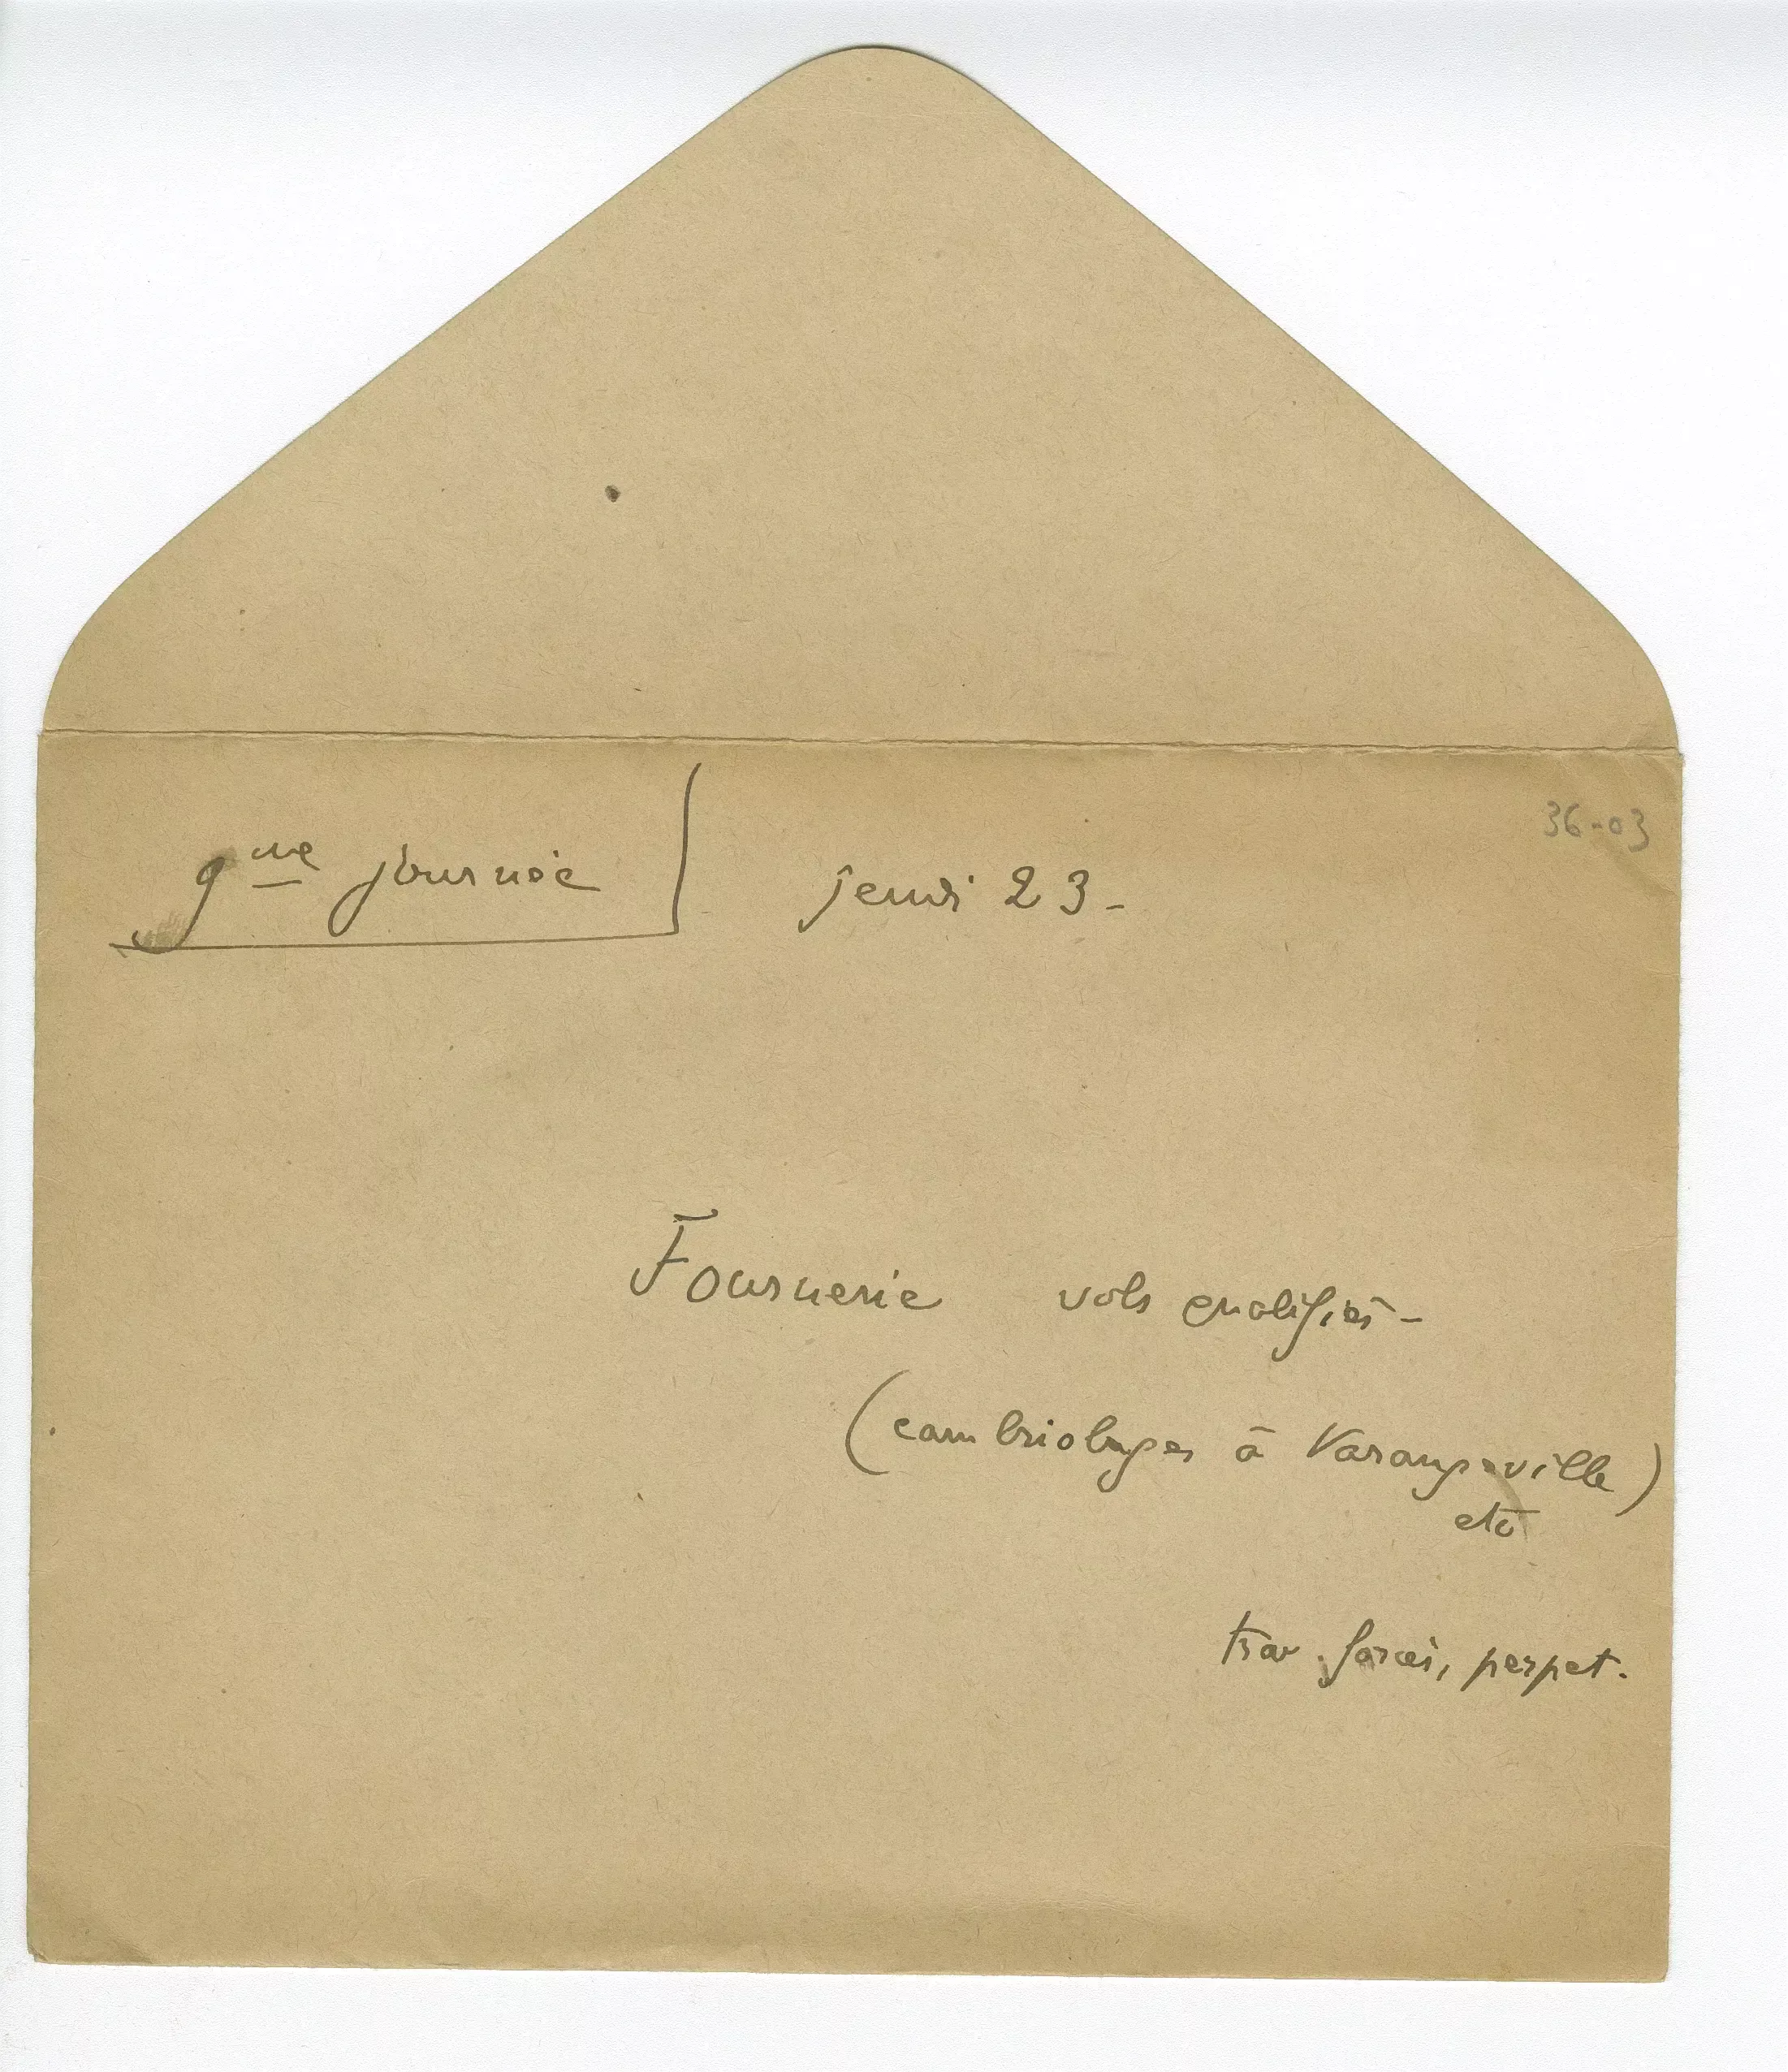 9me journée jeudi 23-
36-03
Fournerie vols qualifiés-
(cambriolages à Varangeville)
etc
trav. forcés, perpet.